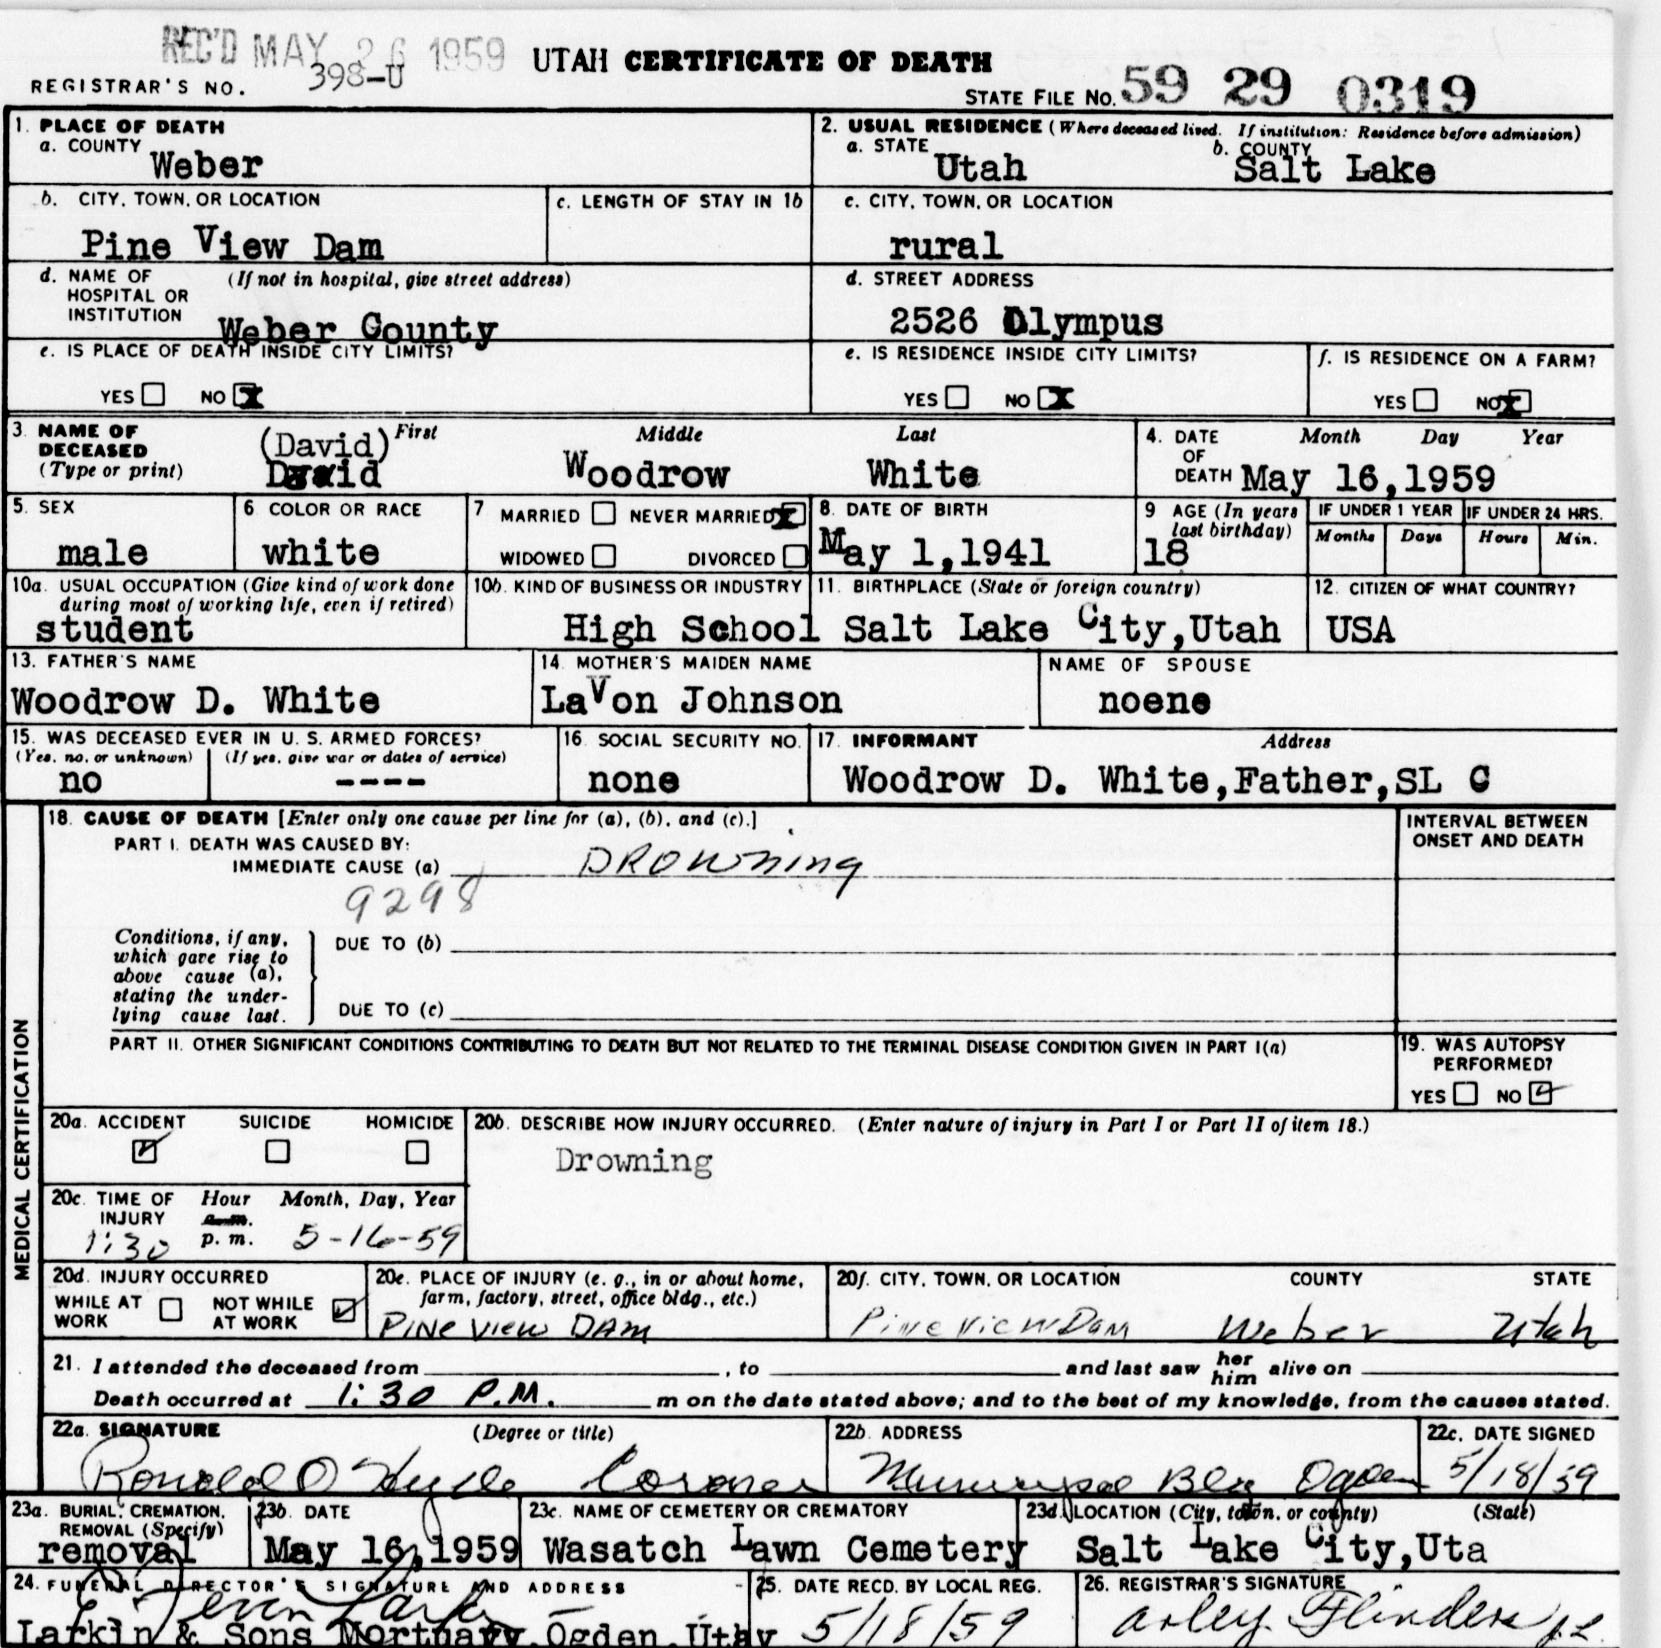 REC'D MAY 26 1959 UTAH CERTIFICATE OF DEATH
REGISTRAR'S NO. 398-U STATE FILE NO. 59 29 0319
1. PLACE OF DEATH
a. COUNTY
Weber
2. USUAL RESIDENCE (Where deceased lived. If institution: Residence before admission)
a. STATE b. COUNTY
Utah Salt Lake
b. CITY, TOWN, OR LOCATION
Pine View Dam
c. LENGTH OF STAY IN 1b
c. CITY, TOWN, OR LOCATION
rural
d. NAME OF HOSPITAL OR INSTITUTION (If not in hospital, give street address)
Weber County
d. STREET ADDRESS
2526 Olympus
e. IS PLACE OF DEATH INSIDE CITY LIMITS?
YES NO X
e. IS RESIDENCE INSIDE CITY LIMITS?
YES NO X
f. IS RESIDENCE ON A FARM?
YES NO X
3. NAME OF DECEASED (Type or print)
First Middle Last
(David)
Woodrow White
4. DATE OF DEATH Month Day Year
May 16,1959
5. SEX
male
6 COLOR OR RACE
white
7 MARRIED NEVER MARRIED X
WIDOWED DIVORCED
8. DATE OF BIRTH
May 1,1941
9 AGE (In years last birthday)
18
IF UNDER 1 YEAR IF UNDER 24 HRS.
Months Days Hours Min.
10a. USUAL OCCUPATION (Give kind of work done during most of working life, even if retired)
student
10b. KIND OF BUSINESS OR INDUSTRY
High School
11. BIRTHPLACE (State or foreign country)
Salt Lake City,Utah
12. CITIZEN OF WHAT COUNTRY?
USA
13. FATHER'S NAME
Woodrow D. White
14. MOTHER'S MAIDEN NAME
LaVon Johnson
NAME OF SPOUSE
noene
15. WAS DECEASED EVER IN U. S. ARMED FORCES?
(Yes, no, or unknown) (If yes, give war or dates of service)
no ----
16. SOCIAL SECURITY NO.
none
17. INFORMANT Address
Woodrow D. White,Father,SL C
MEDICAL CERTIFICATION
18. CAUSE OF DEATH [Enter only one cause per line for (a), (b), and (c).]
PART I. DEATH WAS CAUSED BY:
IMMEDIATE CAUSE (a) DROWning
9298
INTERVAL BETWEEN ONSET AND DEATH
Conditions, if any, which gave rise to above cause (a), stating the underlying cause last.
DUE TO (b)
DUE TO (c)
PART II. OTHER SIGNIFICANT CONDITIONS CONTRIBUTING TO DEATH BUT NOT RELATED TO THE TERMINAL DISEASE CONDITION GIVEN IN PART I(a)
19. WAS AUTOPSY PERFORMED?
YES NO
20a. ACCIDENT SUICIDE HOMICIDE
20b. DESCRIBE HOW INJURY OCCURRED. (Enter nature of injury in Part I or Part II of item 18.)
Drowning
20c. TIME OF INJURY Hour Month, Day, Year
a.m.
1:30 p. m. 5-16-59
20d. INJURY OCCURRED
WHILE AT WORK NOT WHILE AT WORK
20e. PLACE OF INJURY (e. g., in or about home, farm, factory, street, office bldg., etc.)
PINE VIEW DAM
20f. CITY, TOWN, OR LOCATION COUNTY STATE
Pine View Dam Weber Utah
21. I attended the deceased from , to and last saw her him alive on
Death occurred at 1:30 P.M. m on the date stated above; and to the best of my knowledge, from the causes stated.
22a. SIGNATURE (Degree or title)
Ronald O Coroner
22b. ADDRESS
Ogden
22c. DATE SIGNED
5/18/59
23a. BURIAL, CREMATION, REMOVAL (Specify)
removal
23b. DATE
May 16,1959
23c. NAME OF CEMETERY OR CREMATORY
Wasatch Lawn Cemetery
23d. LOCATION (City, town, or county) (State)
Salt Lake City,Uta
24. FUNERAL DIRECTOR'S SIGNATURE AND ADDRESS
Larkin & Sons Mortuary,Ogden,Utah
25. DATE RECD. BY LOCAL REG.
5/18/59
26. REGISTRAR'S SIGNATURE
Arley Flinders